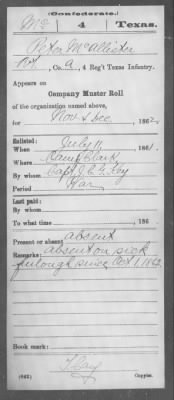 (Confederate.)
Mc 4 Texas.
Peter McAllister
Pvt, Co. A, 4 Reg't Texas Infantry.
Appears on
Company Muster Roll
of the organization named above,
for Nov & Dec, 1862.
Enlisted:
When July 11, 1861.
Where Camp Clark
By whom Capt J. C. G. Key
Period War
Last paid:
By whom
To what time , 186 .
Present or absent absent
Remarks: absent on sick
furlough since Oct 1 1862
Book mark:
(642) Copyist.